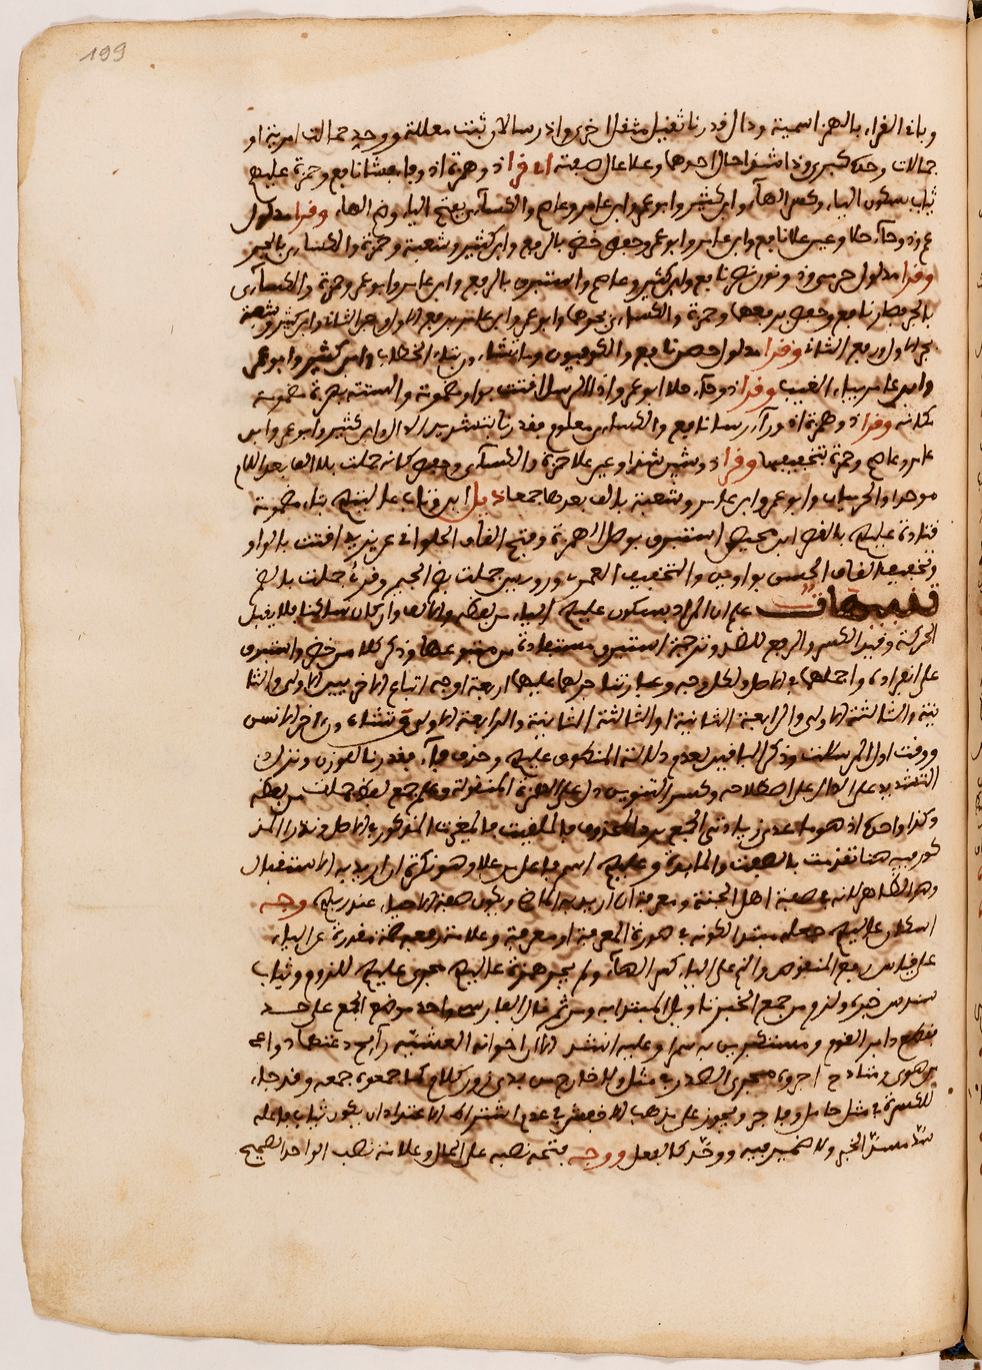 199
وباقي القراء بالهمز اسمية ودال قدرنا ثقيل مثقل اخرى واذ رسالات ثبت معللة ووحد جمالات امرية او
جمالات وحدك كبرروذا شذا حال احدها وعلا عال صفته اي قرا ذو همزة اذ وفا بعشا نافع وحمزة عليهم
ثياب بسكون الياء وكسر الهاء وابن كثير وابو عمرو وابن عامر وعاصم والكسائي بفتح الياء وضم الهاء وقرا مدلول
عم وذو حاء حلا وعين علا نافع وابن عامر وابو عمرو وحفص خضر بالرفع وابن كثير وشعبة وحمزة والكسائي بالجر
وقرا مدلول حرمي وذو نون نصر نافع وابن كثير وعاصم واستبرق بالرفع وابن عامر وابو عمرو وحمزة والكسائي
بالجر فصار نافع وحفص برفعهما وحمزة والكسائي بجرهما وابو عمرو وابن عامر برفع الاول وجر الثاني وابن كثير وشعبة
بجر الاول ورفع الثاني وقرا مدلول حصن نافع والكوفيون وما تشاءون بتاء الخطاب وابن كثير وابو عمرو
وابن عامر بياء الغيب وقرا ذو حاء حلا ابو عمرو واذا الرسل وقتت بواو مضمومة والستة بهمزة مضمومة
مكانه وقرا ذو همزة اذ وراء رسا نافع والكسائي معلوم فقدرنا بتشديد الدال وابن كثير وابو عمرو وابن
عامر وعاصم وحمزة بتخفيفها وقرا ذو شين شذا وعين علا حمزة والكسائي وحفص كانه جملت بلا الف بعد اللام
موحدا والحرميان وابو عمرو وابن عامر وشعبة بالف بعدها جمعا ذيل ابن وثاب عاليتهم بتاء مضمومة
قتادة عليهم بالفتح ابن محيصن استبرق بوصل الهمزة وفتح القاف الحلواني عن يزيد اقتت بالواو
وتخفيف القاف الحسن بواوين والتخفيف العمري ورويس جملت بضم الجيم وقرئ جملت بالضم
تنبيهات علم ان المراد بسكون عليهم الياء من لفظه والالف وان كان ساكنا فلا يقبل
الحركة وقيد الكسر والرفع للضد وترجمة استبرق مستفادة من متبوعها وذكر كلا من خضر واستبرق
على انفراده واجملهما في الاصل ولكل وجه وعبارتنا جرهما عليهما اربعة اوجه اتباع الاخريين الاولى والثا
نية والثالثة الاولى والرابعة الثانية او الثالثة الثانية والرابعة الاولى وتشاءون اخر الانس
ووقت اول المرسلات وذكر الباقين لعدم دلالة المنطوق عليهم وحذف فاء فقدرنا للوزن وتنزل
التشديد على الدال على اصطلاحه وكسر التنوين دل على الهمزة المنقولة وعلم جمع لفظ جملت من لفظه
وكذا واحدها اذ هو ما عدى زيادتي الجمع بدو المحذوف في الملفيت في المغيرات المذكورة في الاصل ونذرا المذ
كور فيه هنا تقدمت بالكهف والمائدة وعاليهم اسم فاعل من علا وهو نكرة ان اريد به الاستقبال
وهو الظاهر لانه في صفة اهل الجنة ومعرفة ان اريد به الماضي ويكون صفة الاحياء عند ربهم وجه
اسكان عاليهم جعله مبتدا لكونه في صورة المعرفة او معرفة وعلامة رفعه ضمة مقدرة على الياء
على قياس رفع المنقوص والتزم على الياء كسر الهاء ولم يجر همزة عاليهم مجرى عليهم للزوم وثياب
سندس خبره ولزم من جمع الخبر تاويل المبتدا به ومن ثم قال الفارسي واحد موضع الجمع على حد
فقطع دابر القوم ومستكبرين به سامرا وعليه انشد الا ان اخواني العشيّة رايح دعتهم دواعي
من هوى ومنادح اجروه مجرى المصدر في مثل ولا خارج من بدي زور كلام كما جمعوه جمعه وقد جاء
للكثرة في مثل حامل وفاجر ويجوز على مذهب الاخفش في عدم اشتراط الاعتماد ان يكون ثياب فاعله
سدّ مسدّ الخبر ولا ضمير فيه ووحّد كالفعل ووجه فتحه نصبه على الحال وعلامة نصب الواحد الصحيح